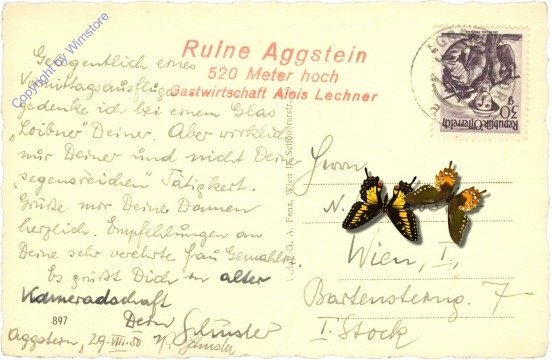 Copyright by Wimstore
Ruine Aggstein
520 Meter hoch
Gastwirtschaft Alois Lechner
Gelegentlich eines
Vormittagsausfluges
gedenke ich bei einem Glas
„Loibner" Deiner. Aber wirklich
nur Deiner und nicht Deiner
„segensreichen" Tätigkeit.
Grüße mir Deine Damen
herzlich. Empfehlungen an
Deine sehr verehrte Frau Gemahlin.
Es grüßt Dich in alter
Kameradschaft
Dein Schuster
897
Aggstein, 29.VIII.50 Schuster
Verlag G. A. Fenz, Wien II.
30 g
Republik Österreich
Herrn
N.
Wien, I.,
Bartensteing. 7
I. Stock